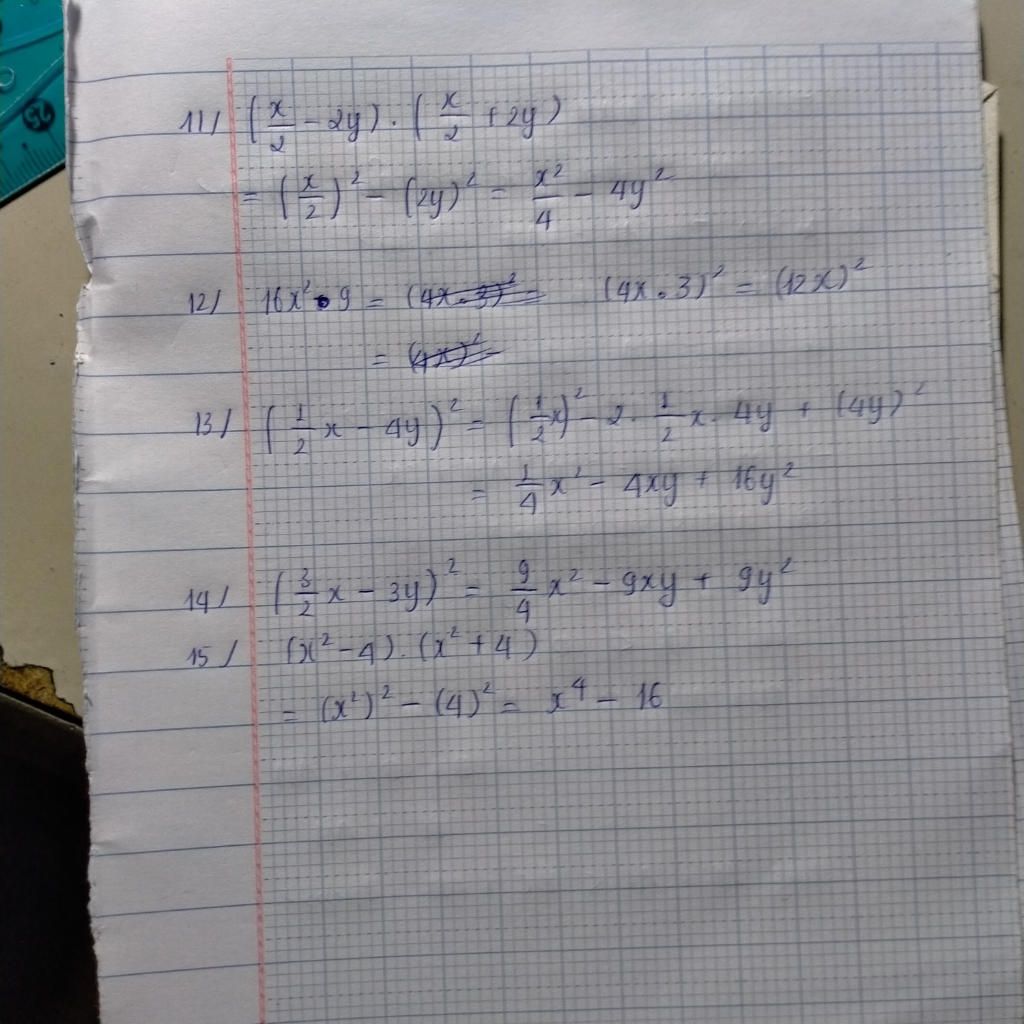 11/ (x/2 - 2y) . (x/2 + 2y)
= (x/2)² - (2y)² = x²/4 - 4y²
12/ 16x² . 9 = (4x . 3)² (4x . 3)² = (12x)²
= (4x)²
13/ (1/2 x - 4y)² = (1/2 x)² - 2 . 1/2 x . 4y + (4y)²
= 1/4 x² - 4xy + 16y²
14/ (3/2 x - 3y)² = 9/4 x² - 9xy + 9y²
15/ (x² - 4) . (x² + 4)
= (x²)² - (4)² = x⁴ - 16